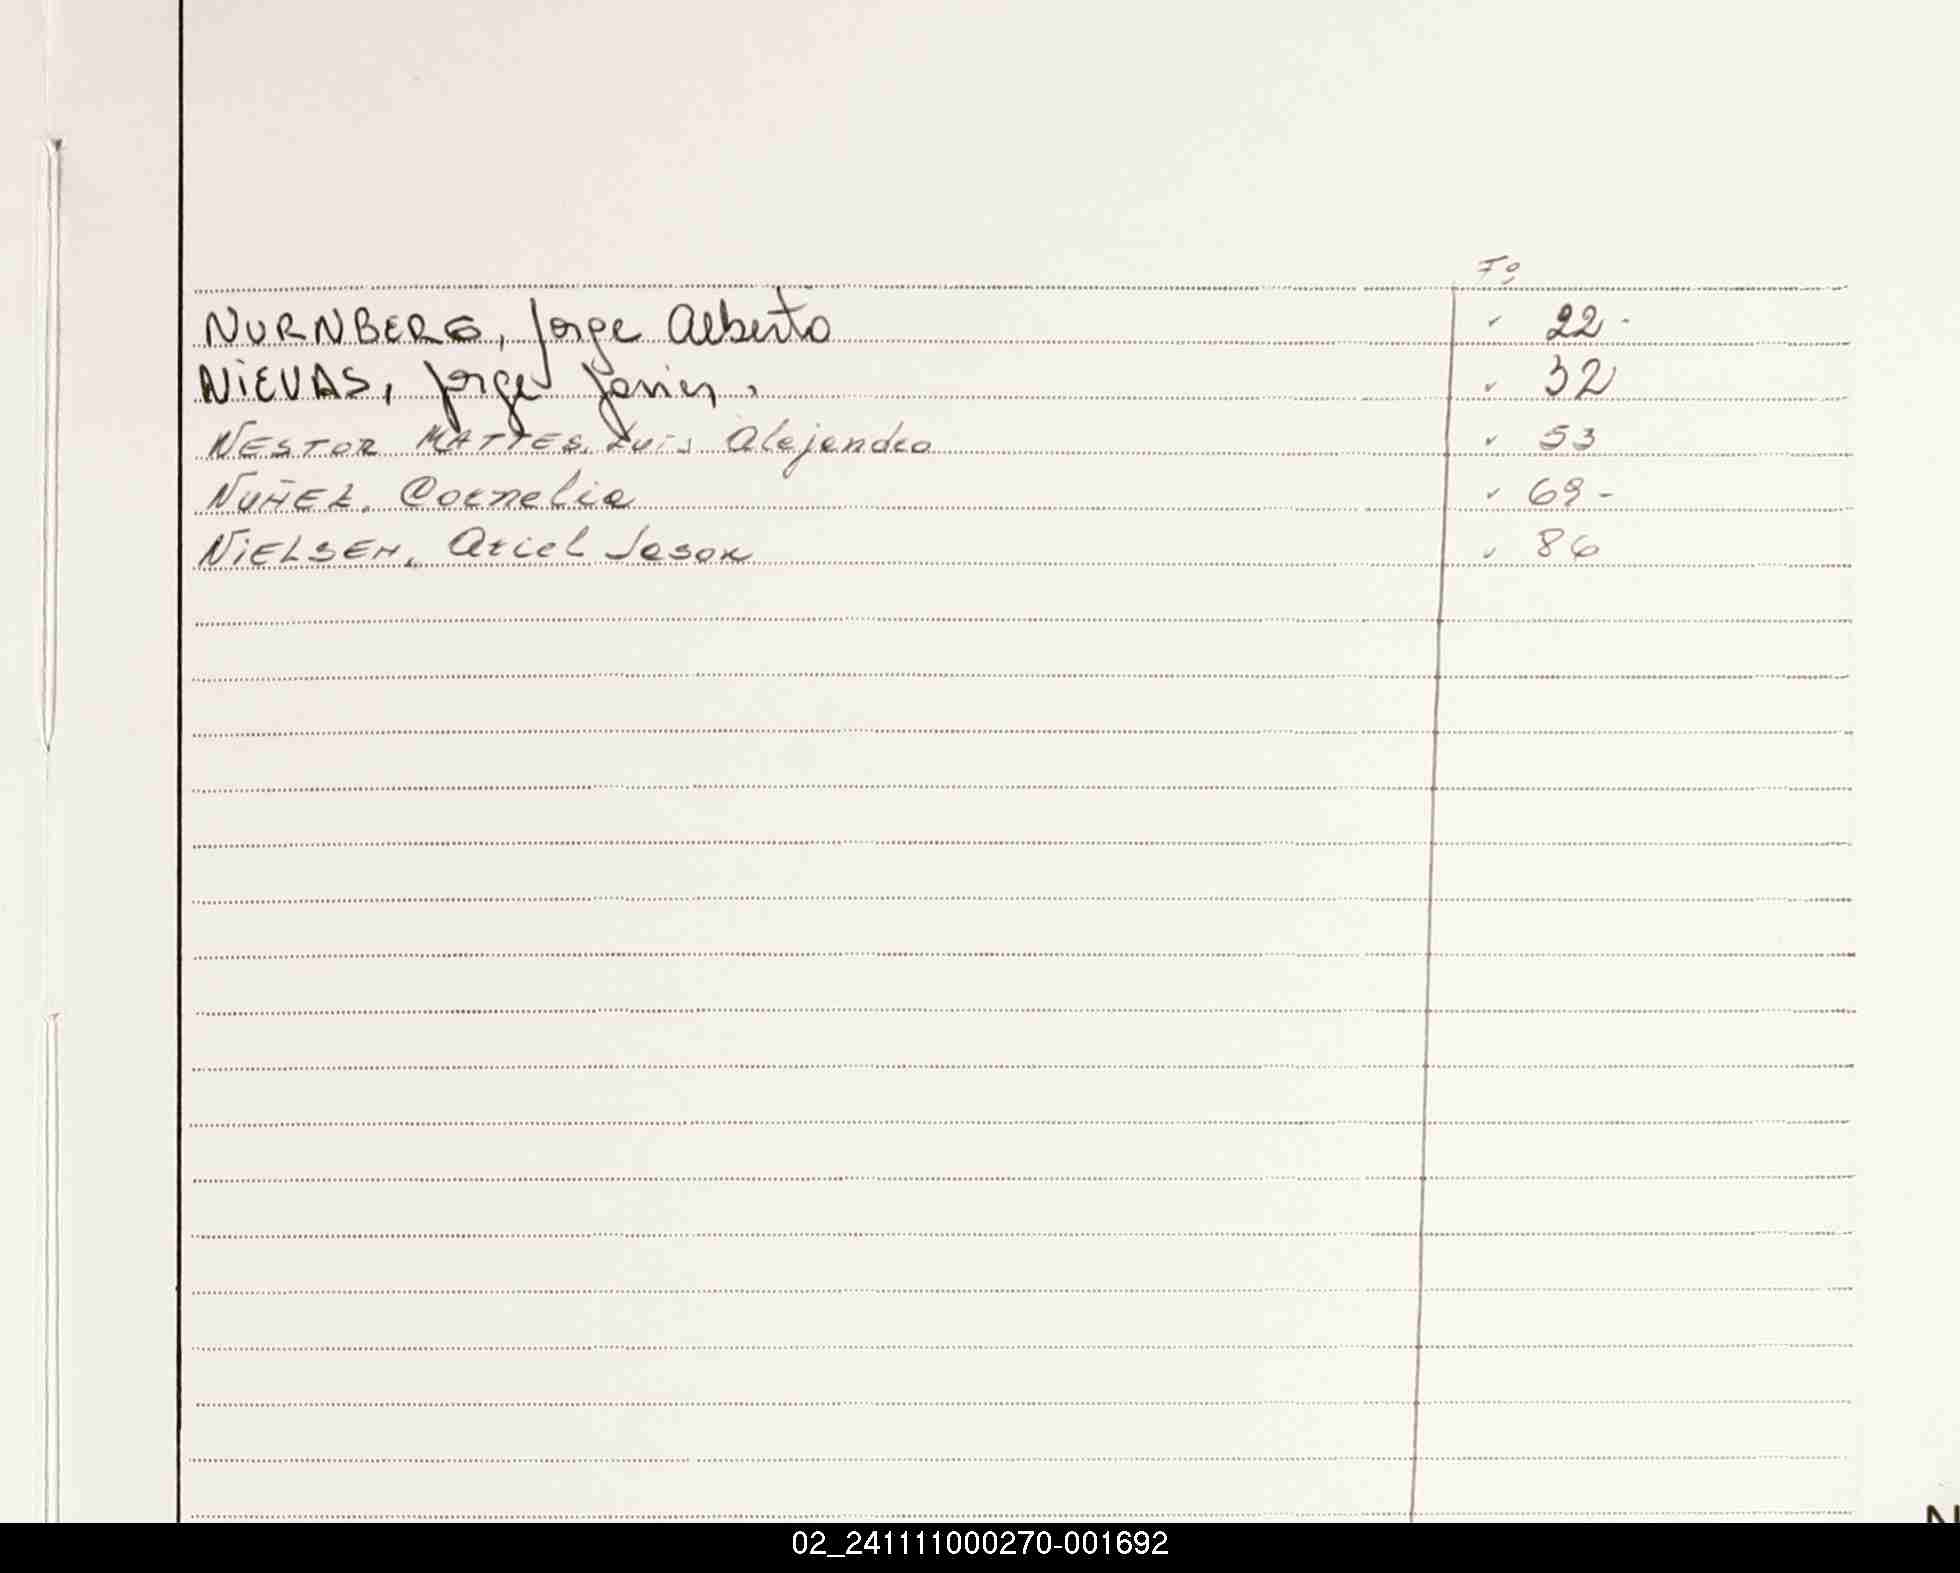 Fº
NURNBERG, Jorge Alberto ✓ 22 -
NiEVAS, Jorge Javier. ✓ 32
NESTOR MATTES, Luis Alejandro ✓ 53
NUÑEZ, Cornelia ✓ 69 -
NiELSEN, Ariel Jason ✓ 86
N
02_241111000270-001692